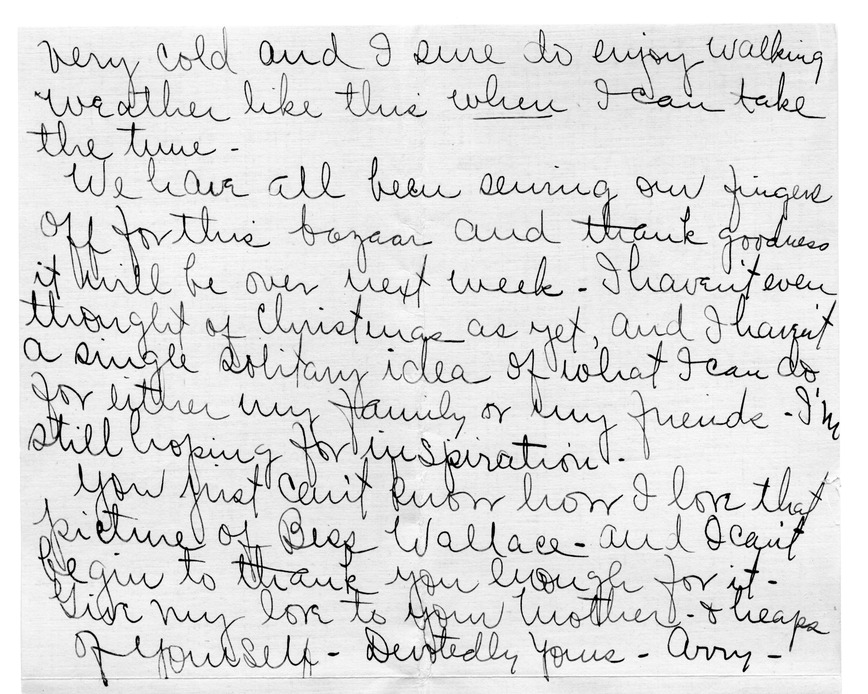 very cold and I sure do enjoy walking
weather like this when I can take
the time -
We have all been sewing our fingers
off for this bazaar and thank goodness
it will be over next week - I haven't even
thought of Christmas as yet, and I haven't
a single solitary idea of what I can do
for either my family or my friends - I'm
still hoping for inspiration.
You just can't know how I love that
picture of Bess Wallace - and I can't
begin to thank you enough for it -
Give my love to your mother - & heaps
of yourself - Devotedly yours - Arry -